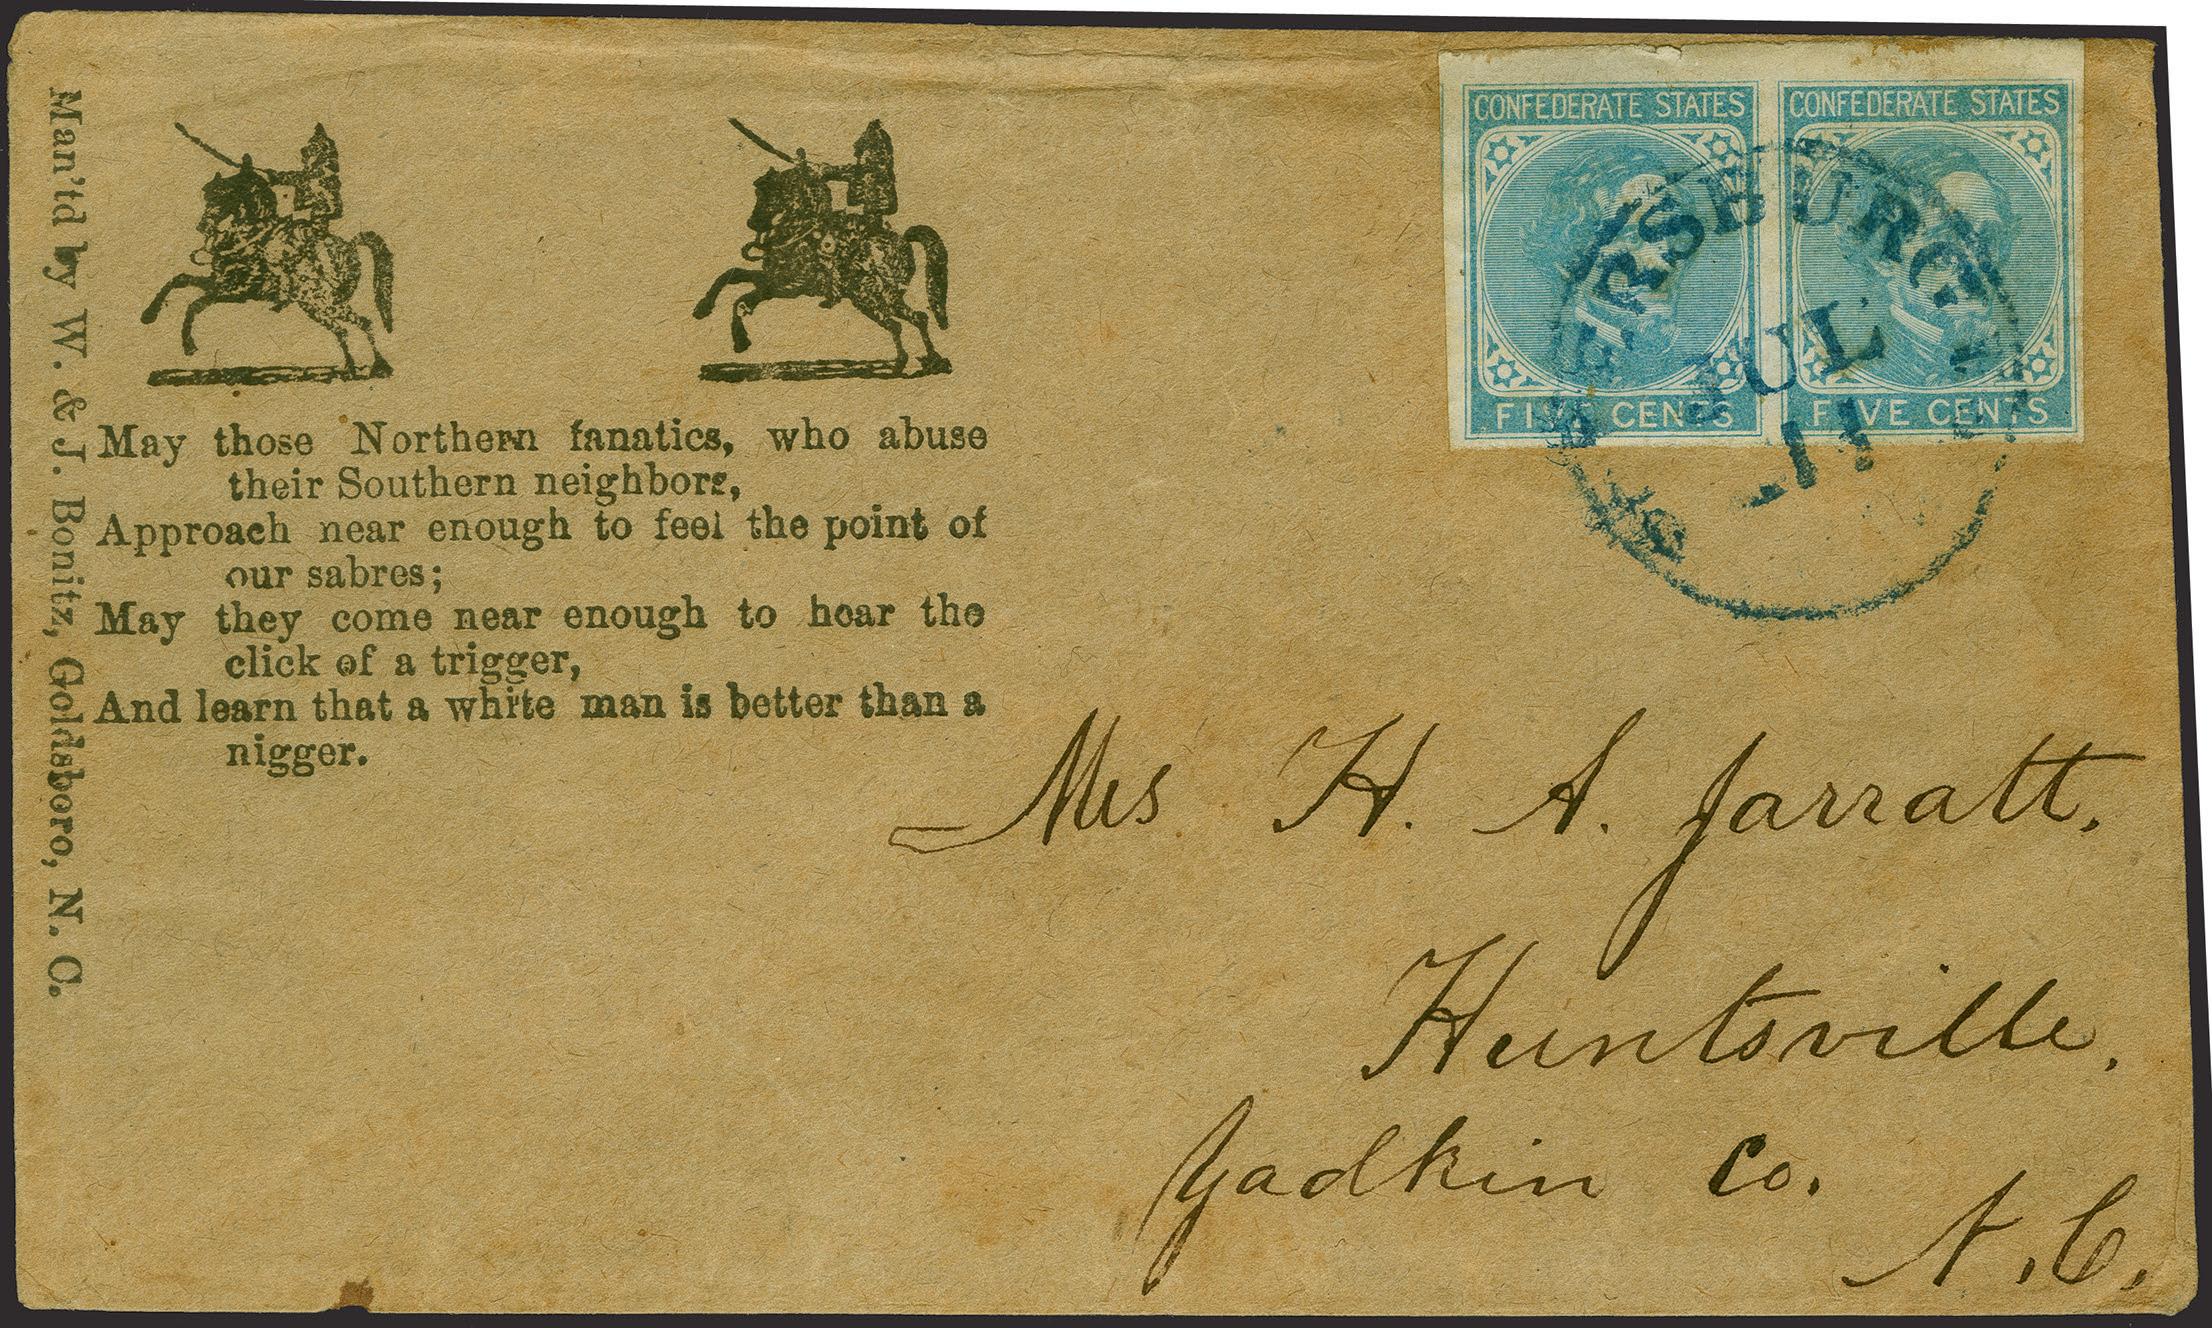 Man'td by W. & J. Bonitz, Goldsboro, N. C.
May those Northern fanatics, who abuse
their Southern neighbors,
Approach near enough to feel the point of
our sabres;
May they come near enough to hear the
click of a trigger,
And learn that a white man is better than a
nigger.
CONFEDERATE STATES
FIVE CENTS
CONFEDERATE STATES
FIVE CENTS
ERSBURG
JUL
Mrs H. A. Jarratt,
Huntsville.
Yadkin Co.
N. C.